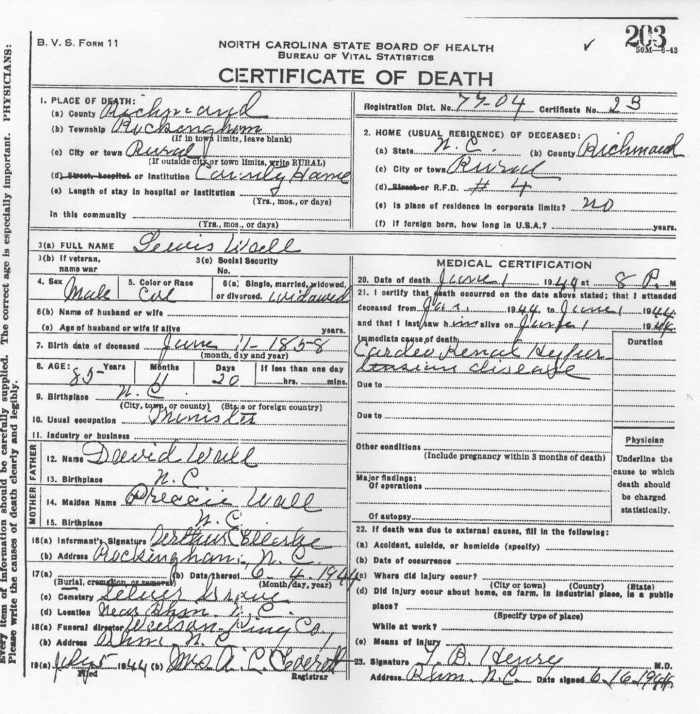 B. V. S. Form 11
NORTH CAROLINA STATE BOARD OF HEALTH
BUREAU OF VITAL STATISTICS
CERTIFICATE OF DEATH
✓
203
50M—6-43
Every item of information should be carefully supplied. The correct age is especially important. PHYSICIANS:
Please write the causes of death clearly and legibly.
1. PLACE OF DEATH:
(a) County Richmond
(b) Township Rockingham
(If in town limits, leave blank)
(c) City or town Rural
(If outside city or town limits, write RURAL)
(d) Street, hospital or institution County Home
(e) Length of stay in hospital or institution
(Yrs., mos., or days)
In this community
(Yrs., mos., or days)
Registration Dist. No. 77-04 Certificate No. 23
2. HOME (USUAL RESIDENCE) OF DECEASED:
(a) State N.C. (b) County Richmond
(c) City or town Rural
(d) Street or R.F.D. # 4
(e) Is place of residence in corporate limits? no
(f) If foreign born, how long in U.S.A.? years.
3(a) FULL NAME Lewis Wall
3(b) If veteran, name war
3(c) Social Security No.
4. Sex Male
5. Color or Race Col
6(a) Single, married, widowed, or divorced. widowed
6(b) Name of husband or wife
(c) Age of husband or wife if alive years.
7. Birth date of deceased June 11-1858
(month, day and year)
8. AGE: 85 Years 11 Months 20 Days If less than one day hrs. mins.
9. Birthplace N.C.
(City, town, or county) (State or foreign country)
10. Usual occupation Minister
11. Industry or business
FATHER
12. Name David Wall
13. Birthplace N.C
MOTHER
14. Maiden Name Wall
15. Birthplace N.C.
16(a) Informant's Signature
(b) Address Rockingham, N.C.
17(a) (b) Date thereof 6-4-1944
(Burial, cremation, or removal) (Month/day, year)
(c) Cemetery Grove
(d) Location Near Rhm. N.C.
18(a) Funeral director King Co,
(b) Address Rhm N.C
19(a) 1944 (b) Mrs A. C. Everett
Filed Registrar
MEDICAL CERTIFICATION
20. Date of death June 1 1944 at 8 P. M
21. I certify that death occurred on the date above stated; that I attended
deceased from Jan. 1944 to June 1 1944
and that I last saw him alive on June 1 1944
Immediate cause of death
Cardeo Renal Hyper
tension disease
Duration
Due to
Due to
Other conditions
(Include pregnancy within 3 months of death)
Major findings:
Of operations
Of autopsy
Physician
Underline the cause to which death should be charged statistically.
22. If death was due to external causes, fill in the following:
(a) Accident, suicide, or homicide (specify)
(b) Date of occurrence
(c) Where did injury occur?
(City or town) (County) (State)
(d) Did injury occur about home, on farm, in industrial place, in a public
place?
(Specify type of place)
While at work?
(e) Means of injury
23. Signature T. B. Henry M.D.
Address Rhm. N.C. Date signed 6-16-1944